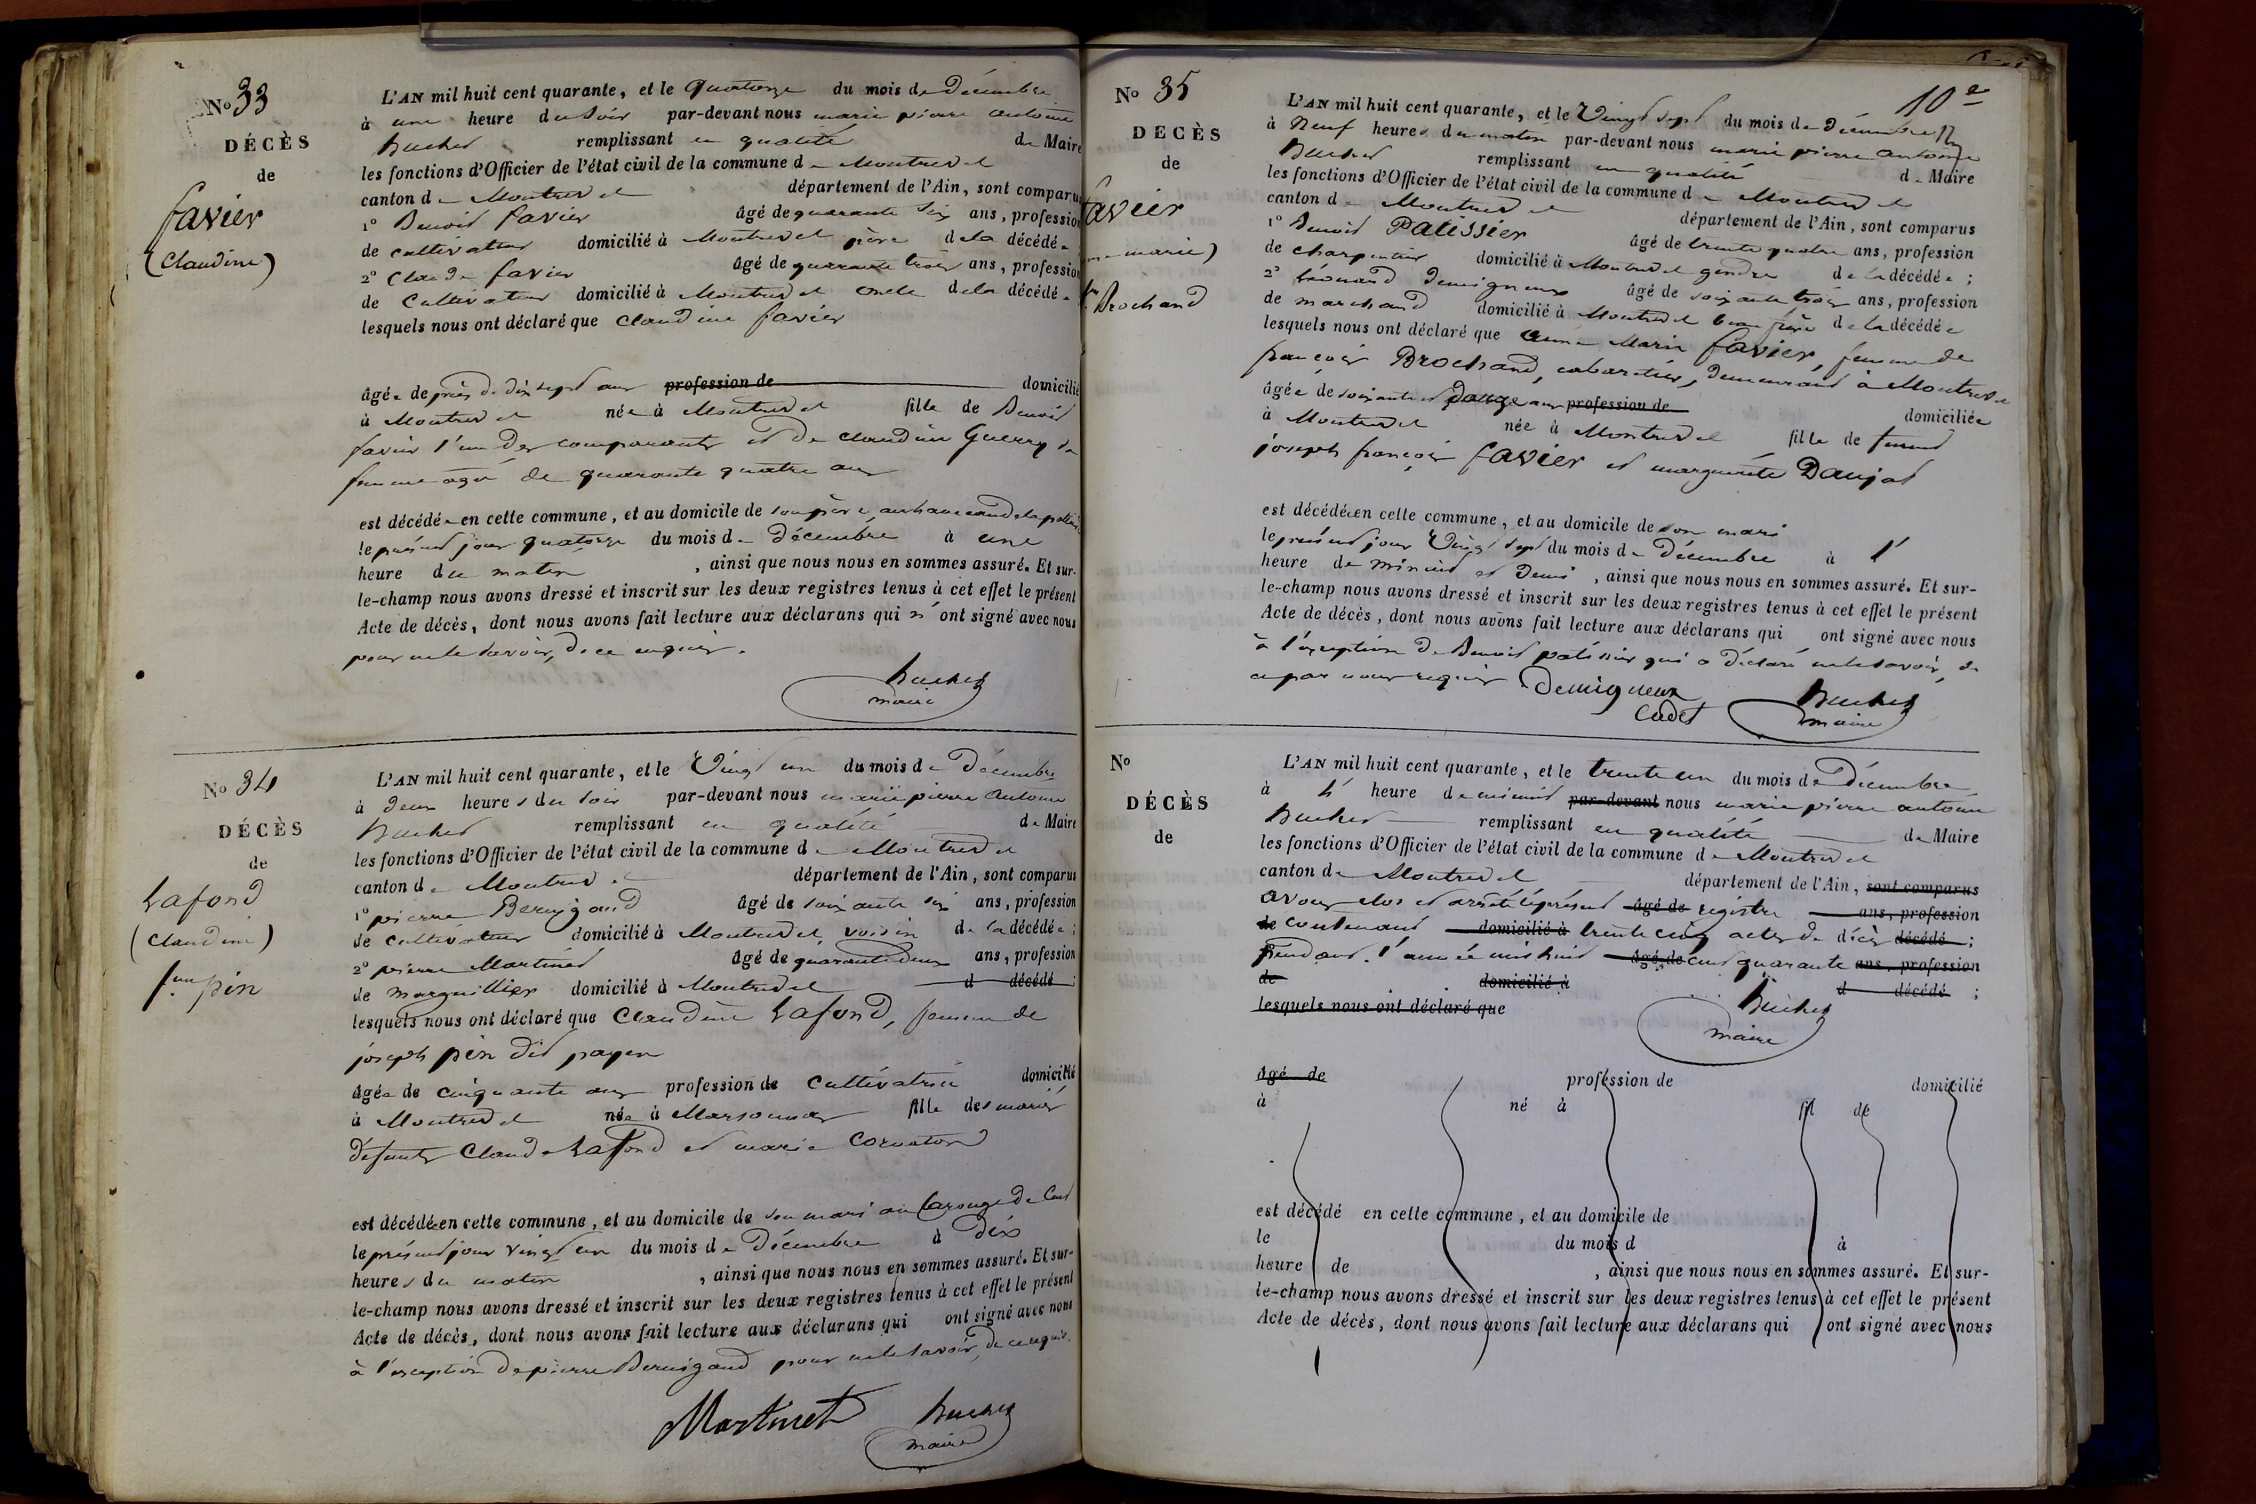 No 33
DÉCÈS
de
favier
(Claudine)
L'AN mil huit cent quarante, et le quatorze du mois de Décembre
à une heure du soir par-devant nous marie pierre antoine
Buchet remplissant en qualité de Maire
les fonctions d'Officier de l'état civil de la commune de Montrevel
canton de Montrevel département de l'Ain, sont comparus
1° Benoit favier âgé de quarante six ans, profession
de cultivateur domicilié à Montrevel père de la décédée
2° Claude favier âgé de quarante trois ans, profession
de Cultivateur domicilié à Montrevel oncle de la décédée
lesquels nous ont déclaré que Claudine favier
âgée de près de dix sept ans profession de domicilié
à Montrevel née à Montrevel fille de Benoit
favier l'un des comparants et de claudine Guerry sa
femme agée de quarante quatre ans
est décédée en cette commune, et au domicile de son père, au hameau de la
le présent jour quatorze du mois de Décembre à une
heure du matin, ainsi que nous nous en sommes assuré. Et sur-
le-champ nous avons dressé et inscrit sur les deux registres tenus à cet effet le présent
Acte de décès, dont nous avons fait lecture aux déclarans qui n'ont signé avec nous
pour ne le savoir, de ce enquis.
Buchet
maire
No 34
DÉCÈS
de
Lafond
(Claudine)
f.me pin
L'AN mil huit cent quarante, et le Vingt un du mois de Décembre
à deux heures du soir par-devant nous marie pierre antoine
Buchet remplissant en qualité de Maire
les fonctions d'Officier de l'état civil de la commune de Montrevel
canton de Montrevel département de l'Ain, sont comparus
1° pierre Bernigaud âgé de soixante six ans, profession
de cultivateur domicilié à Montrevel, voisin de la décédée;
2° pierre Martinet âgé de quarante deux ans, profession
de marguillier domicilié à Montrevel d décédé;
lesquels nous ont déclaré que Claudine Lafond, femme de
joseph pin dit payen
âgée de cinquante ans profession de cultivatrice domicilié
à Montrevel née à Marsonnas fille des mariés
défunts Claude Lafond et marie Corneton
est décédée en cette commune, et au domicile de son mari au
le présent jour vingt un du mois de Décembre à dix
heures du matin, ainsi que nous nous en sommes assuré. Et sur-
le-champ nous avons dressé et inscrit sur les deux registres tenus à cet effet le présent
Acte de décès, dont nous avons fait lecture aux déclarans qui ont signé avec nous
à l'exception de pierre Bernigaud pour ne le savoir, de ce enquis.
Martinet Buchet
maire
10e
No 35
DÉCÈS
de
favier
marie)
f.me Brochand
L'AN mil huit cent quarante, et le Vingt sept du mois de Décembre
à Neuf heures du matin par-devant nous marie pierre antoine
Buchet remplissant en qualité de Maire
les fonctions d'Officier de l'état civil de la commune de Montrevel
canton de Montrevel département de l'Ain, sont comparus
1° Benoit Patissier âgé de trente quatre ans, profession
de charpentier domicilié à Montrevel gendre de la décédée;
2° Léonard Demigneux âgé de soixante trois ans, profession
de marchand domicilié à Montrevel beau frère de la décédée
lesquels nous ont déclaré que Anne Marie favier, femme de
françois Brochand, cabaretier, demeurant à Montrevel
âgée de soixante et douze ans profession de domiciliée
à Montrevel née à Montrevel fille de furent
joseph françois favier et marguerite Daujat
est décédée en cette commune, et au domicile de son mari
le présent jour Vingt sept du mois de Décembre à l'
heure de minuit et demi, ainsi que nous nous en sommes assuré. Et sur-
le-champ nous avons dressé et inscrit sur les deux registres tenus à cet effet le présent
Acte de décès, dont nous avons fait lecture aux déclarans qui ont signé avec nous
à l'exception de Benoit patissier qui a déclaré ne le savoir, de
ce par nous requis Demigneux Buchet
Cadet maire
No
DÉCÈS
de
L'AN mil huit cent quarante, et le trente un du mois de Décembre
à l' heure de minuit par-devant nous marie pierre antoine
Buchet remplissant en qualité de Maire
les fonctions d'Officier de l'état civil de la commune de Montrevel
canton de Montrevel département de l'Ain, sont comparus
avons clos et arrêté le présent âgé de registre ans, profession
de contenant domicilié à trente cinq actes de décès décédé;
pendant l'année mil huit âgé de cent quarante ans, profession
de domicilié à d décédé;
lesquels nous ont déclaré que Buchet
maire
âgé de profession de domicilié
à né à fil de
est décédé en cette commune, et au domicile de
le du mois d à
heure de, ainsi que nous nous en sommes assuré. Et sur-
le-champ nous avons dressé et inscrit sur les deux registres tenus à cet effet le présent
Acte de décès, dont nous avons fait lecture aux déclarans qui ont signé avec nous